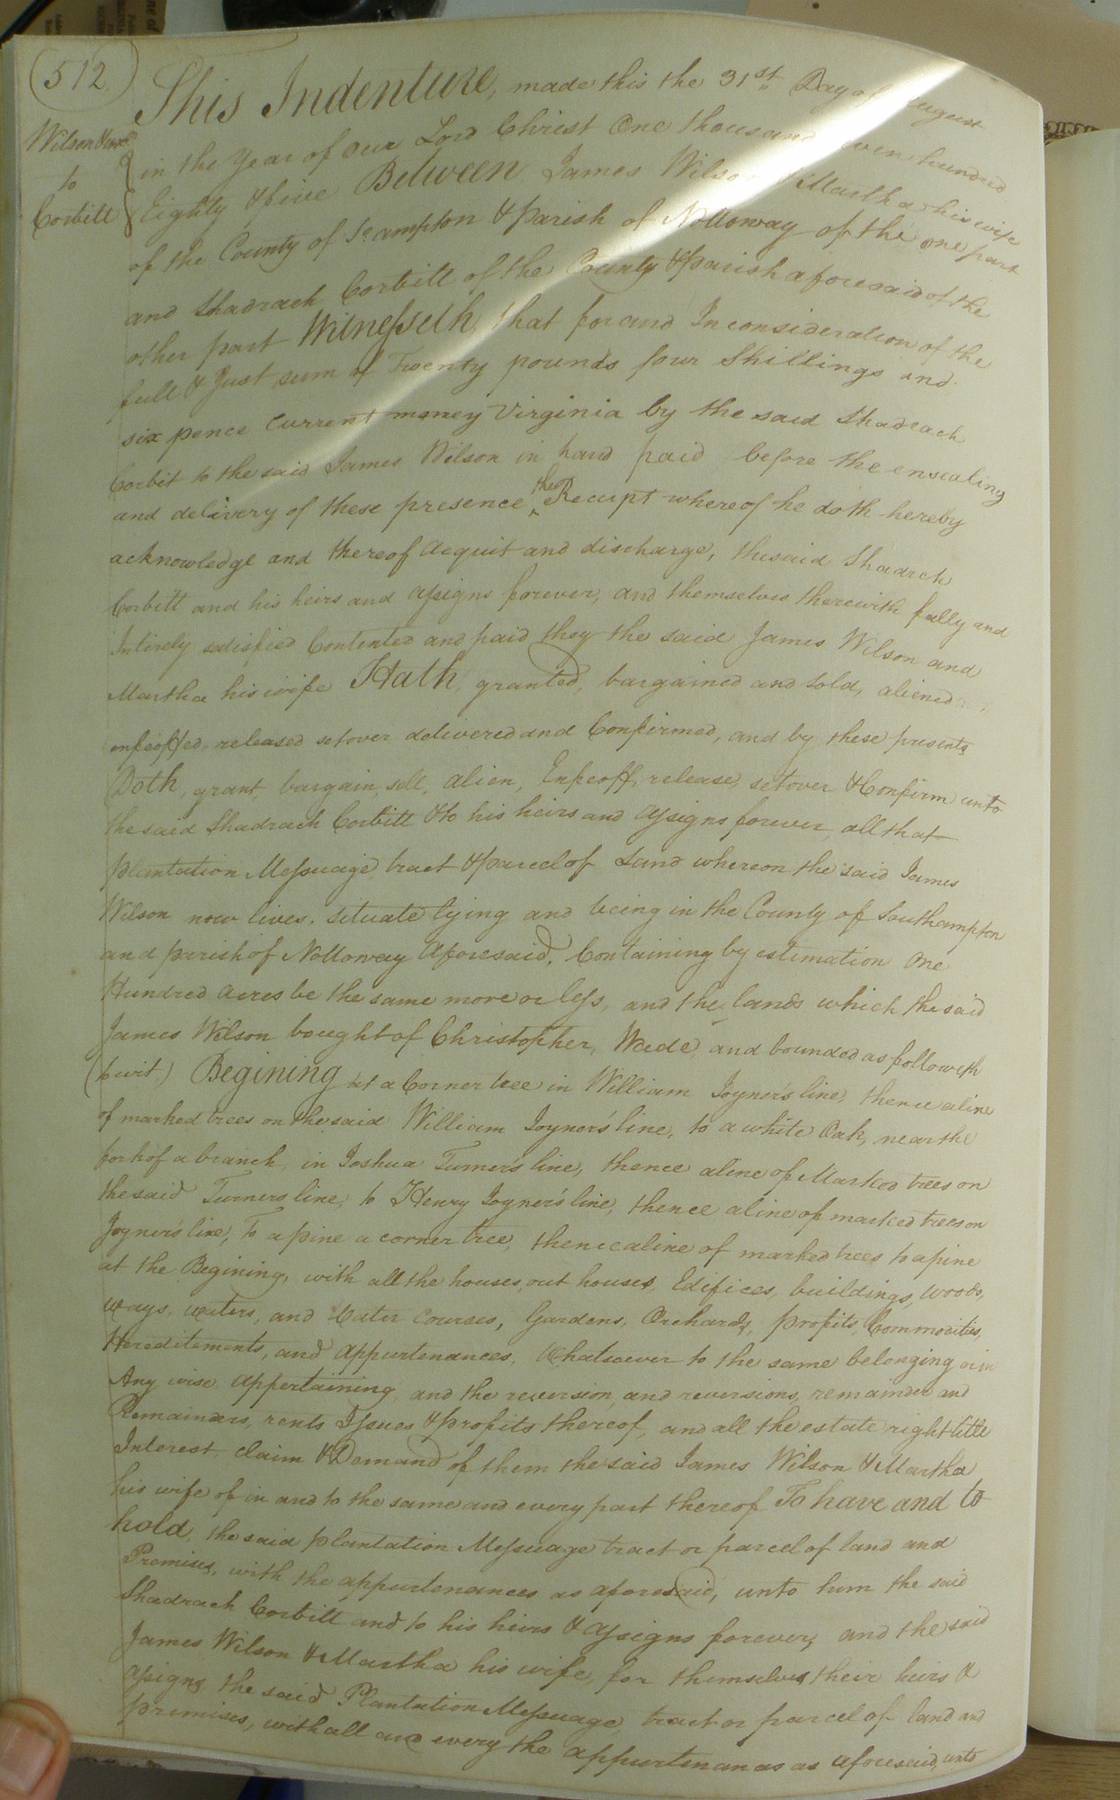 512
Wilson & ux
to
Corbitt
This Indenture, made this the 31st Day of August
in the Year of our Lord Christ One thousand seven hundred
Eighty & five Between James Wilson & Martha his wife
of the County of So ampton & Parish of Nottoway of the one part
and Shadrach Corbitt of the County & parish aforesaid of the
other part Witnesseth, that for and In consideration of the
full & Just sum of Twenty pounds four Shillings and
six pence current money Virginia by the said Shadrach
Corbit to the said James Wilson in hand paid before the ensealing
and delivery of these presence the Receipt whereof he doth hereby
acknowledge and thereof acquit and discharge, the said Shadrch
Corbitt and his heirs and assigns forever, and themselves therewith fully and
Intirely satisfied Contented and paid they the said James Wilson and
Martha his wife Hath, granted, bargained and sold, aliened
enfeoffed, released setover delivered and Confirmed, and by these presents
Doth, grant, bargain, sell, alien, Enfeoff, release, setover & Confirm unto
the said Shadrach Corbitt & to his heirs and assigns forever, all that
plantation Messuage tract & parcel of Land whereon the said James
Wilson now lives, situate lying and being in the County of Southampton
and parish of Nottoway aforesaid, Containing by estimation One
Hundred acres be the same more or less, and the lands which the said
James Wilson bought of Christopher, Wade, and bounded as followeth
(towit) Begining at a Corner tree in William Joyner's line, thence a line
of marked trees on the said William Joyner's line, to a white Oak, near the
fork of a branch, in Joshua Turner's line, thence a line of Marked trees on
the said Turners line, to Henry Joyner's line, thence a line of marked trees on
Joyner's line, To a pine a corner tree, thence a line of marked trees to a pine
at the Begining, with all the houses, out houses, Edifices, buildings, woods,
ways, waters, and Water Courses, Gardens, Orchards, profits, Commodities,
Hereditements, and appurtenances, Whatsoever to the same belonging or in
Any wise appertaining, and the reversion, and reversions, remainder and
Remainders, rents Issues & profits thereof, and all the estate right title
Interest claim & Demand of them the said James Wilson & Martha
his wife of in and to the same and every part thereof To have and to
hold, the said plantation Messuage tract or parcel of land and
Premises, with the appurtenances as aforesaid, unto him the said
Shadrach Corbitt and to his heirs & assigns forever, and the said
James Wilson & Martha his wife, for themselves their heirs &
assigns the said Plantation Messuage, tract or parcel of land and
premises, with all and every the appurtenanas as aforesaid, unto